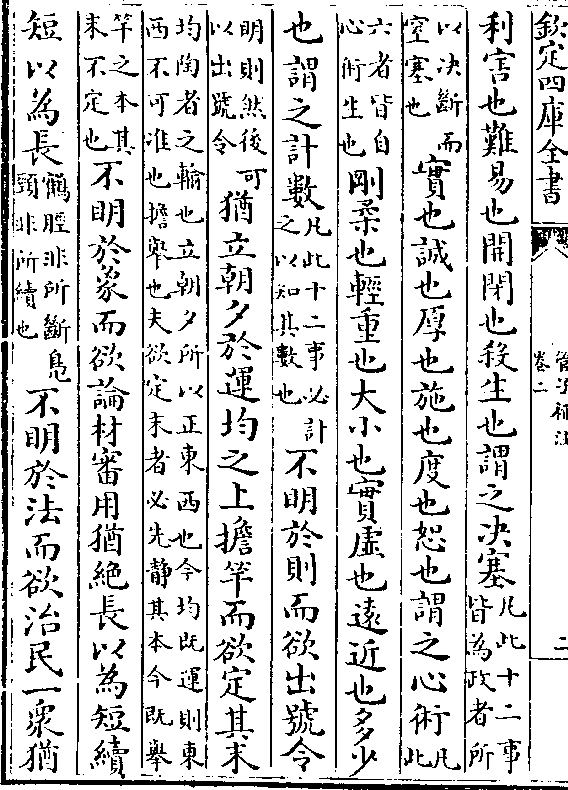 欽定四庫全書 管子補注 卷二 二
利害也難易也開閉也殺生也謂之決塞凡此十二事皆為政者所
以決斷而窒塞也實也誠也厚也施也度也恕也謂之心術凡此
六者皆自心術生也剛柔也輕重也大小也實虛也遠近也多少
也謂之計數凡此十二事必計之以知其數也不明於則而欲出號令
明則然後可以出號令猶立朝夕於運均之上擔竿而欲定其末
均陶者之輪也立朝夕所以正東西也今均既運則東西不可准也擔舉也夫欲定末者必先静其本今既舉
竿之本其末不定也不明於象而欲論材審用猶絶長以為短續
短以為長鶴脛非所斷鳬頸非所續也不明於法而欲治民一衆猶